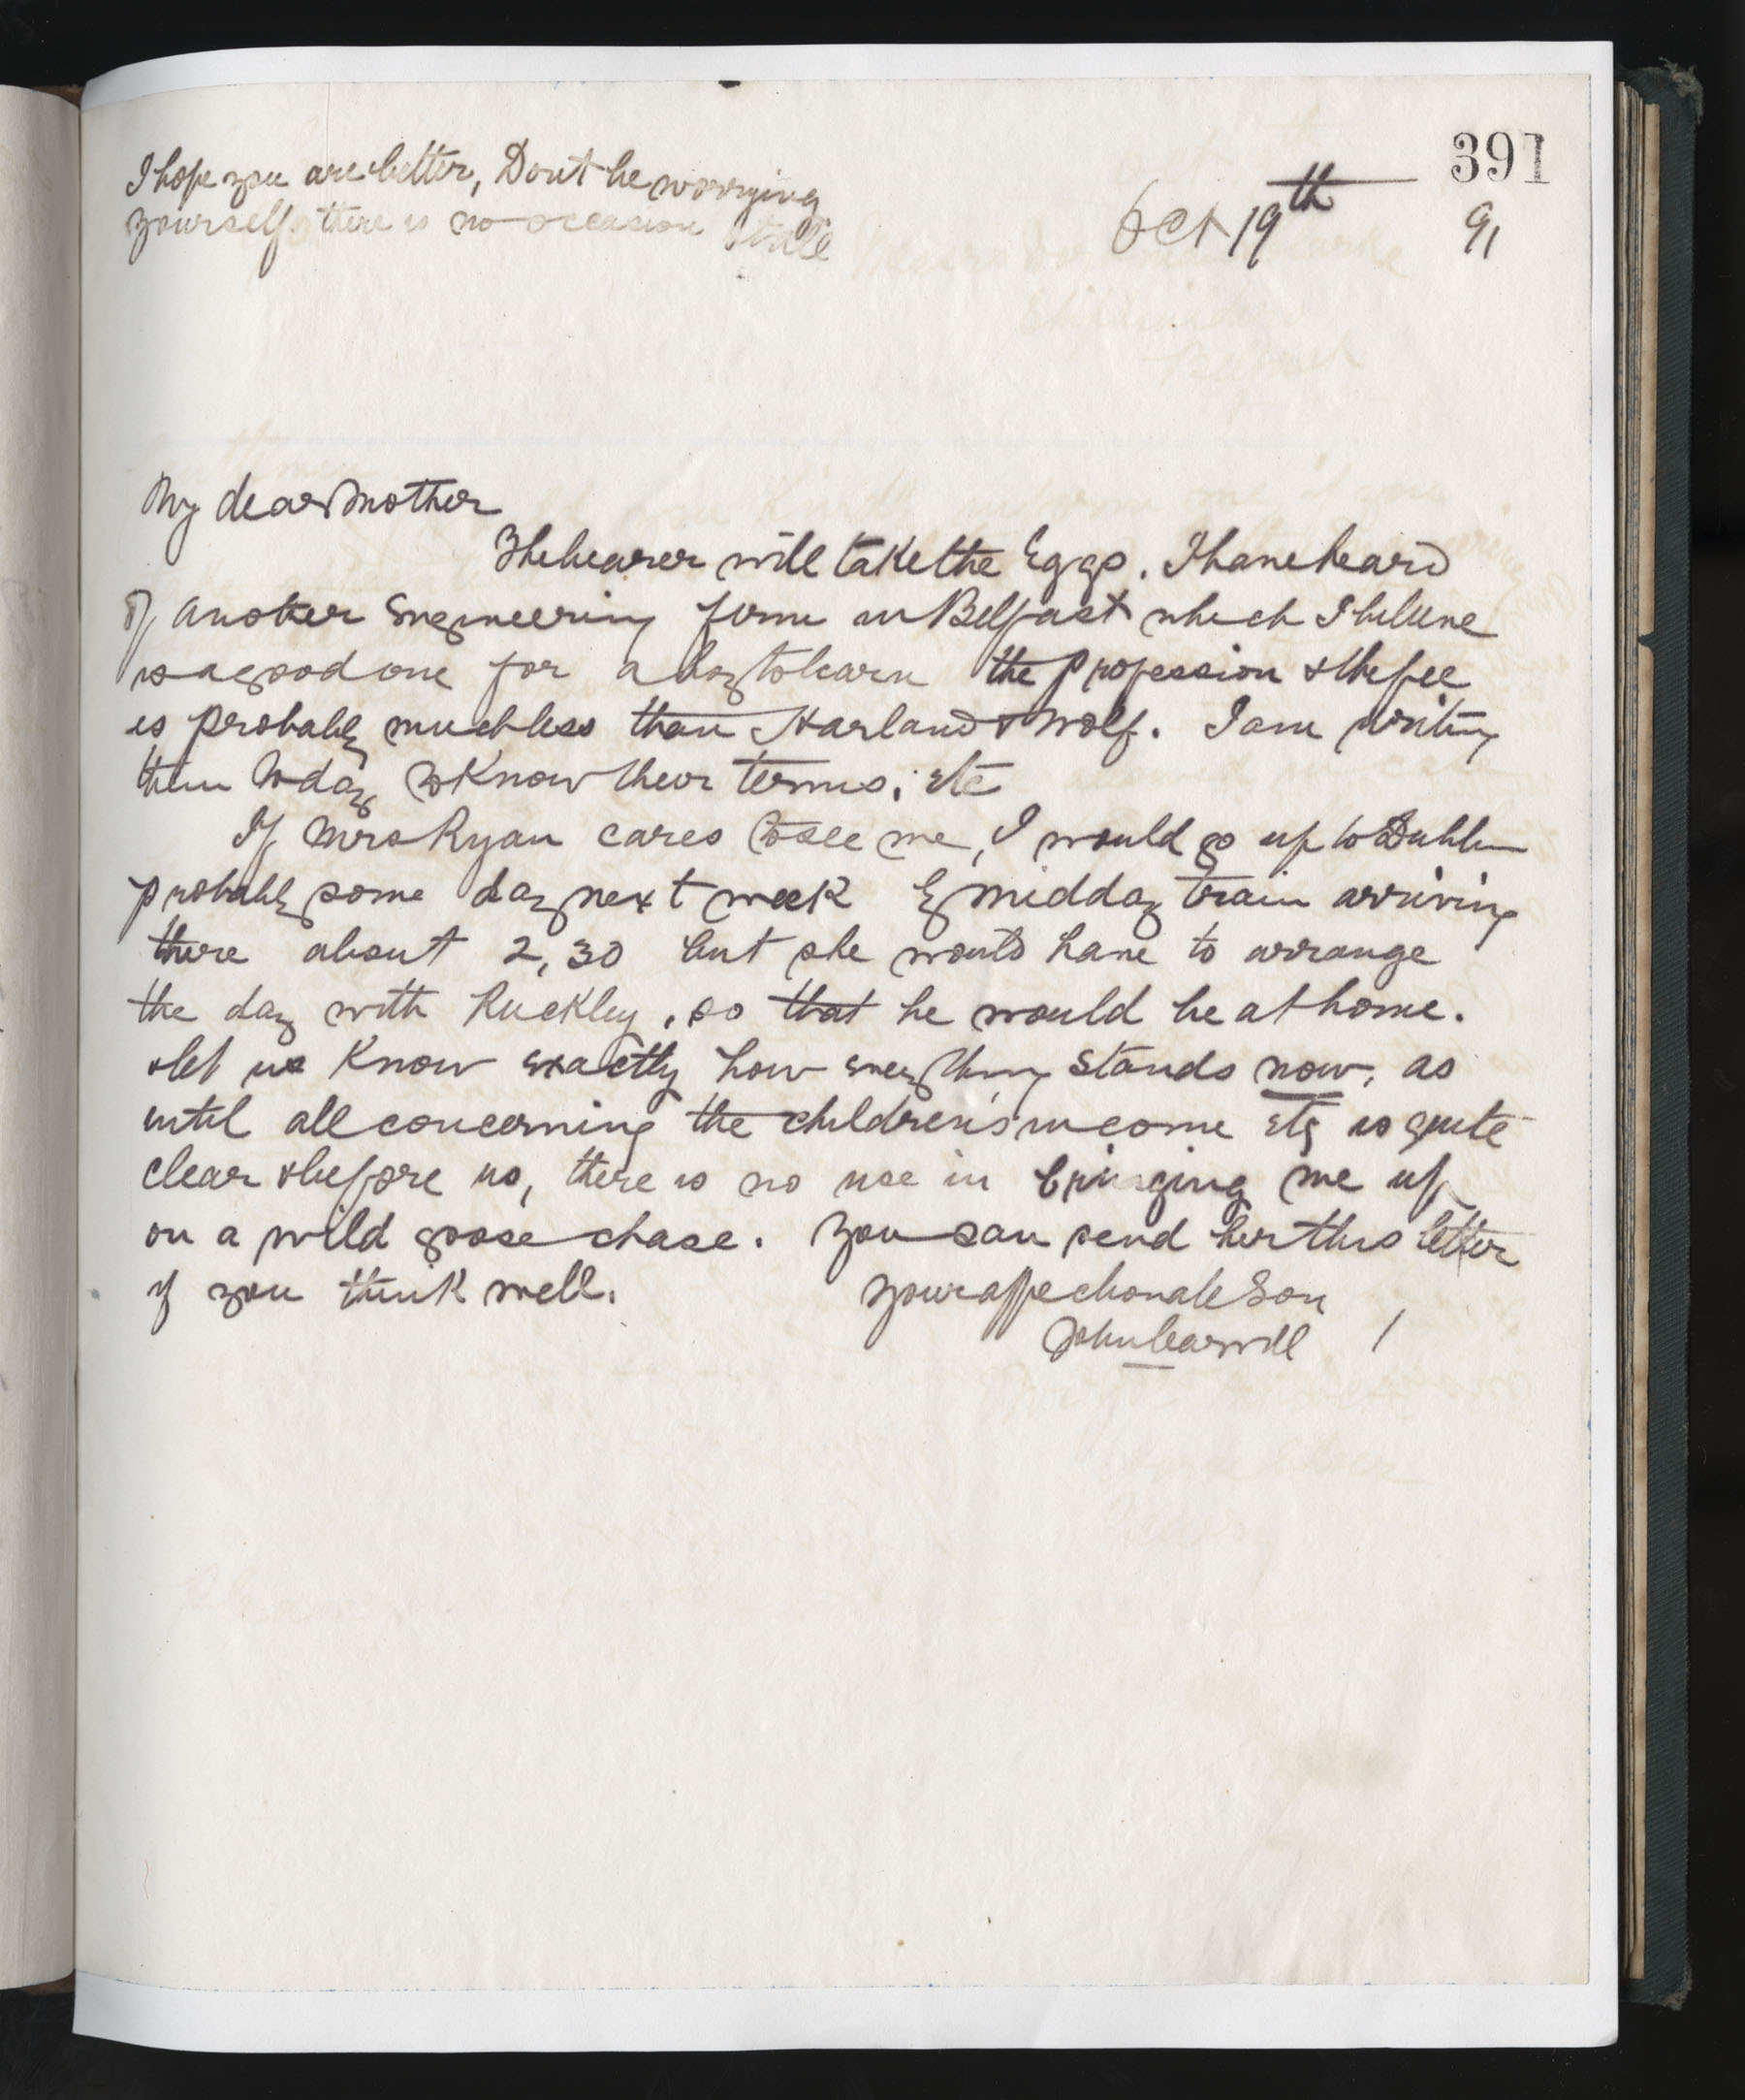 391
I hope you are better, Dont be worrying
yourself there is no occasion
Oct 19th 91
My dear Mother
The bearer will take the Eggs. I have heard
of another Engineering firm in Belfast which I believe
is a good one for a boy to learn the profession & the fee
is probably much less than Harland & Wolf. I am writing
them today to know their terms, etc
If Mrs Ryan cares to see me, I would go up to Dublin
probably some day next week by midday train arriving
there about 2,30 but she would have to arrange
the day with Ruckley, so that he would be at home.
& let us know exactly how everything stands now, as
until all concerning the children's income etc is quite
clear & before us, there is no use in bringing me up
on a wild goose chase. You can send her this letter
if you think well. Your affectionate Son
John